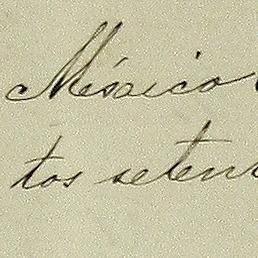 México
tos seten